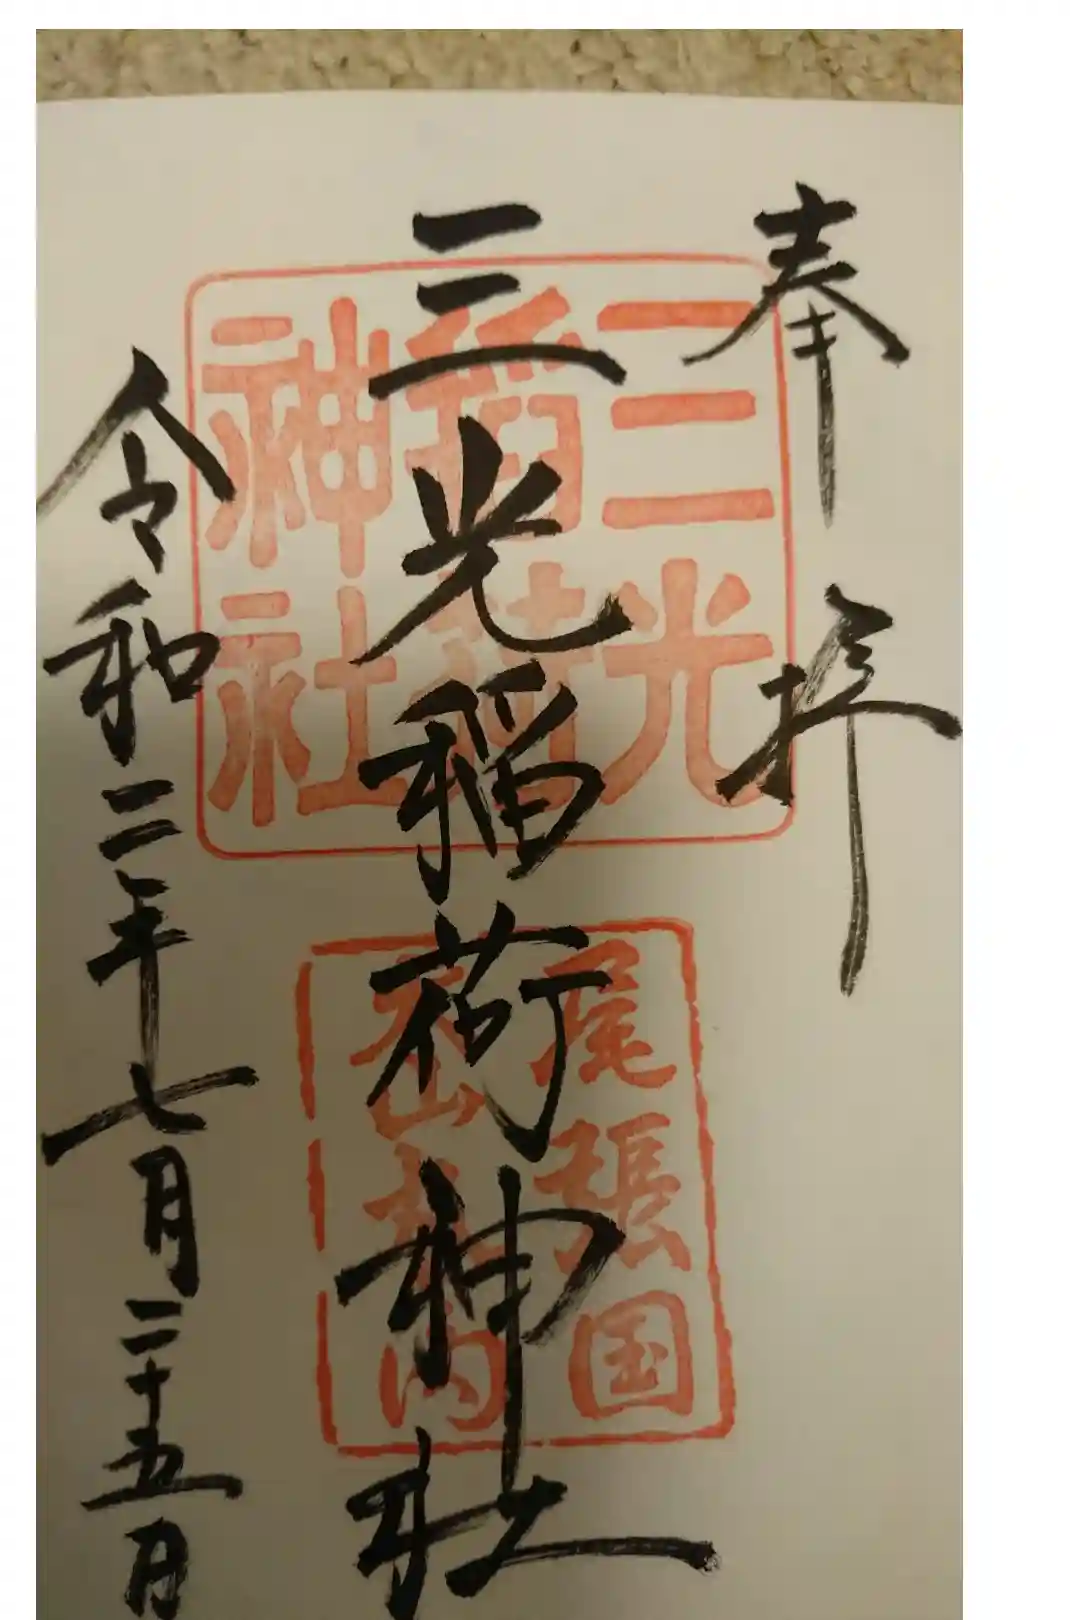 奉拝
三光
稲荷
神社
三光稲荷神社
尾張国
犬山 内
令和二年七月二十五日